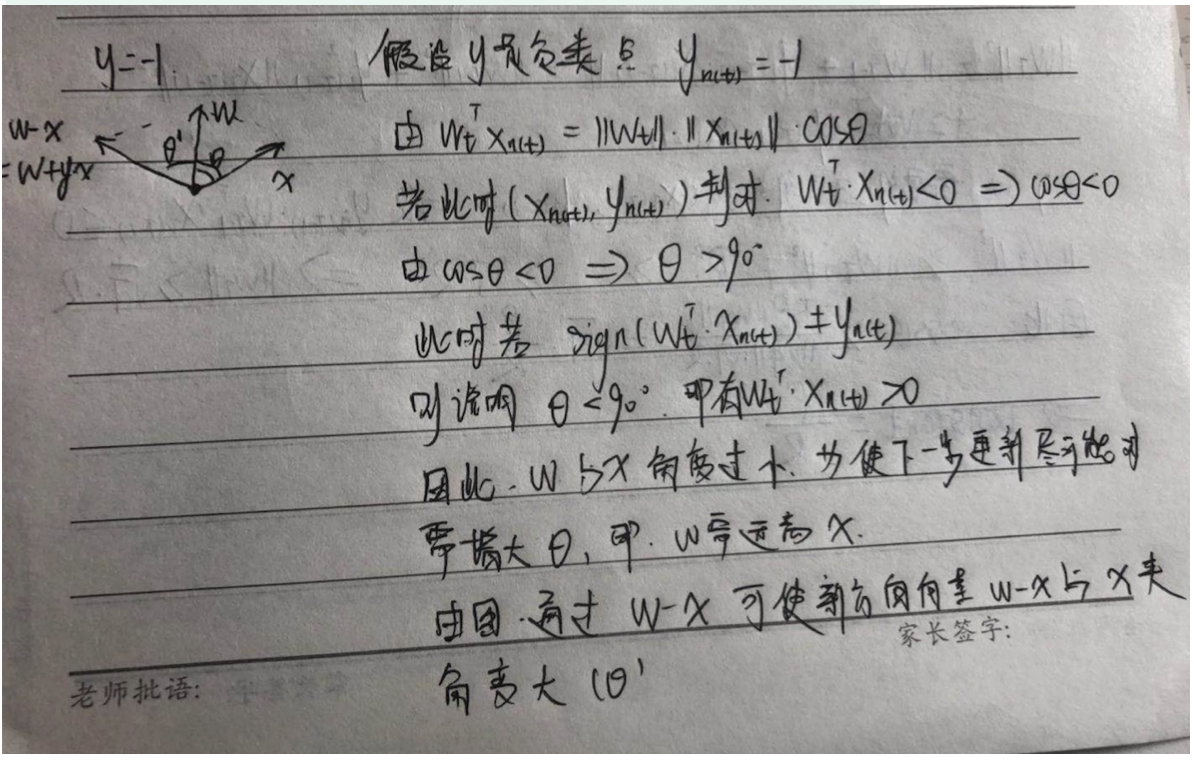 y=-1.
假设y是负类点 y_{n(t)}=-1
W
w-x
=w+yx
θ' θ
x
由 W_t^T X_{n(t)} = ||W_t||·||X_{n(t)}||·cosθ
若此时(X_{n(t)}, y_{n(t)})判对. W_t^T·X_{n(t)}<0 => cosθ<0
由 cosθ<0 => θ>90°
此时若 sign(W_t^T·X_{n(t)})≠y_{n(t)}
则说明 θ<90°. 即有W_t^T·X_{n(t)}>0
因此. W与X角度过小. 为使下一步更新尽可能对
需增大θ, 即. W需远离X.
由图.通过 W-X 可使新方向向量 W-X与X夹
家长签字:
角变大 (θ'
老师批语: